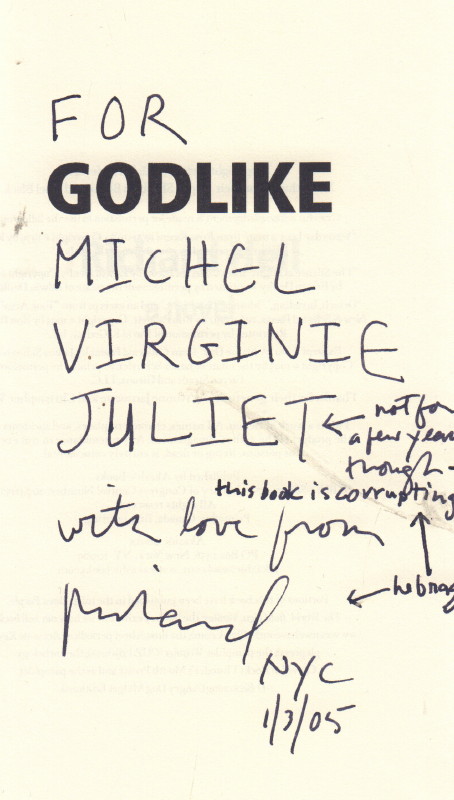 FOR
GODLIKE
MICHEL
VIRGINIE
JULIET ← not for
a few year
though -
this book is corrupting
with love from
Richard ← he brag
NYC
1/3/05